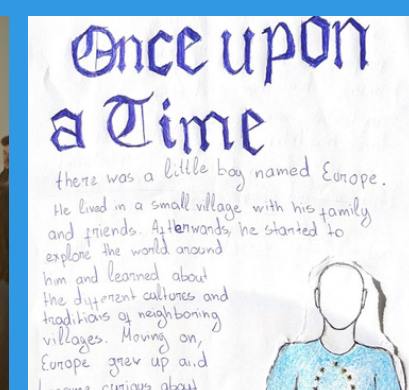 Once upon
a Time
there was a little boy named Europe.
He lived in a small village with his family
and friends. Afterwards, he started to
explore the world around
him and learned about
the different cultures and
traditions of neighboring
villages. Moving on,
Europe grew up and
became curious about